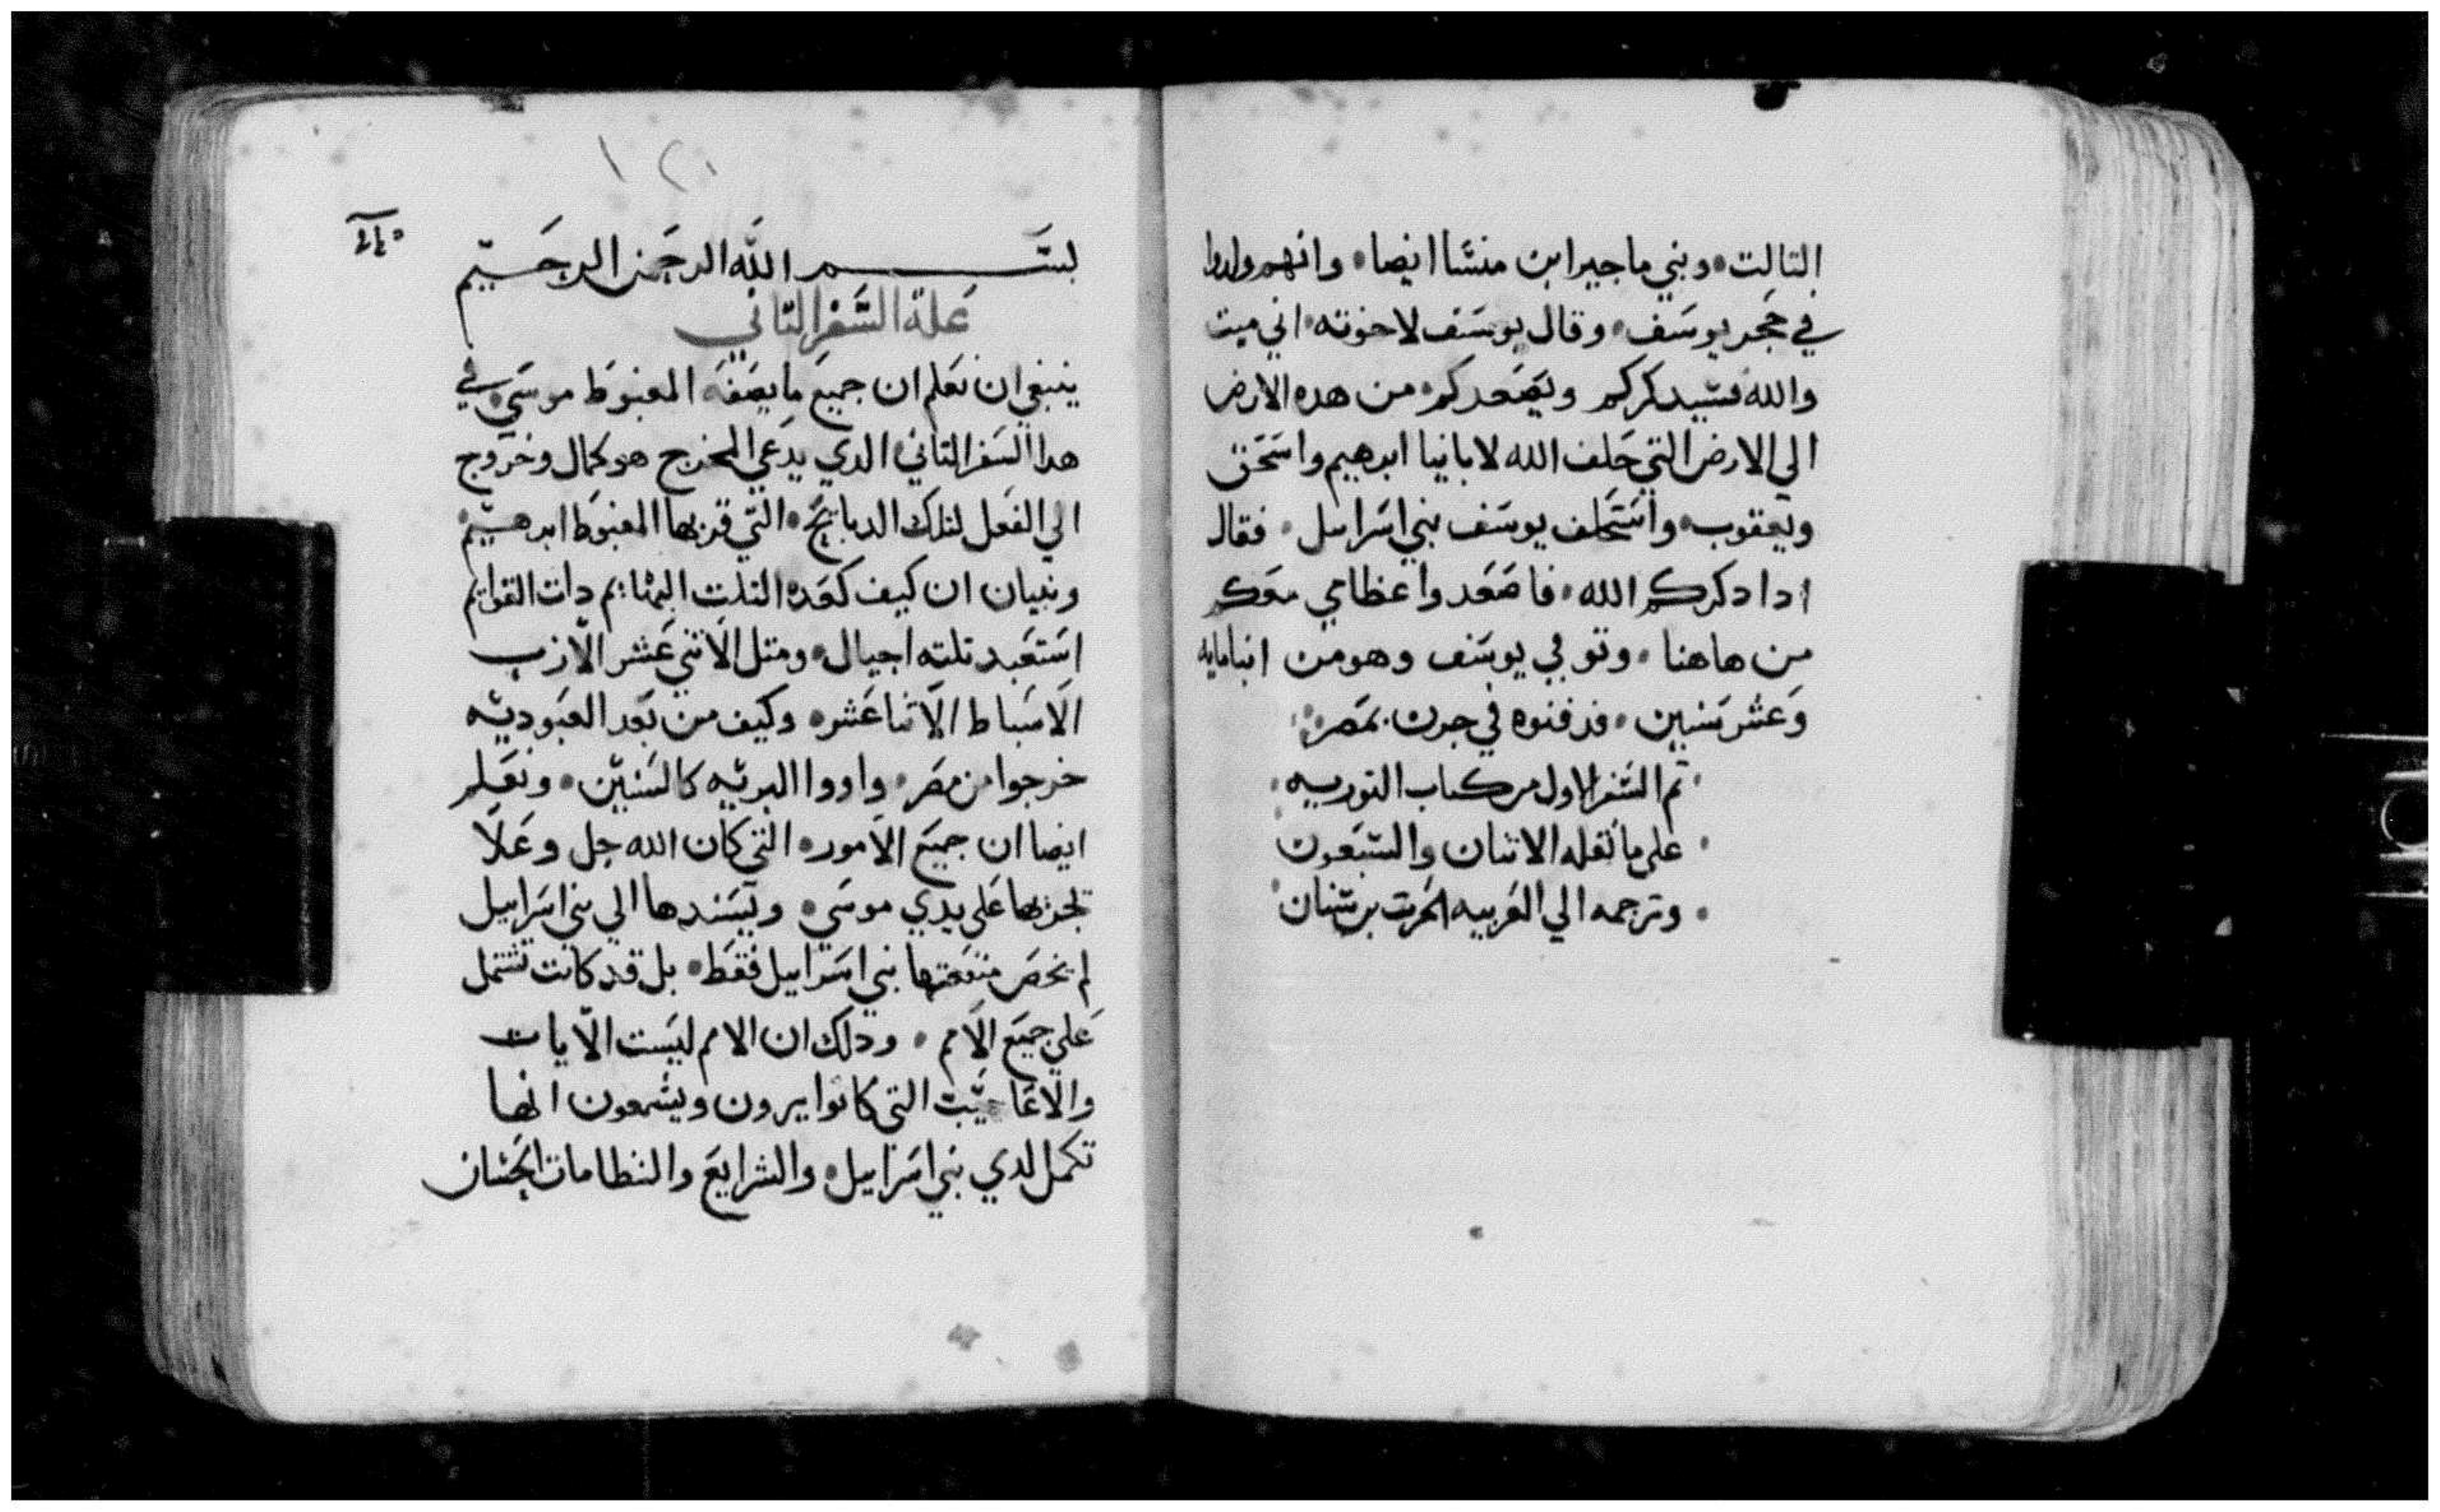 التالت • وبني ماجير ابن منشا ايضا • وانهم ولدوا
في حجر يوسف • وقال يوسف لاخوته • اني ميت
والله فسيدكركم ويصعدكم • من هده الارض
الي الارض التي حلف الله لابائنا ابرهيم واسحق
ويعقوب • واستحلف يوسف بني اسراىل • فقال
ادا دكركم الله • فاصعدوا عظامي معكم
من هاهنا • وتوفي يوسف وهو من ابن مايه
وعشر سنين • فدفنوه في جرن بمصر
تم السفر الاول من كتاب التوريه
على ما نقله الاتنان والسبعون
• وترجمه الي العربيه الحرت بن سنان
١٢١
بسم الله الرحمن الرحيم
علة السفر التاني
ينبغي ان نعلم ان جميع ما يصفه المغبوط موسي في
هدا السفر التاني الدي يدعي المخرج هو كمال وخروج
الي الفعل لتلك الدبايح • التي قربها المغبوط ابرهيم
وتبيان ان كيف كعده التلت البهايم دات القوايم
استعبد تلته اجيال • ومتل الاتني عشر الارب
الاسباط الاتنا عشر • وكيف من بعد العبوديه
خرجوا من مصر • واووا البريه كالسنين • ونعلم
ايضا ان جميع الامور • التي كان الله جل وعلا
يجريها علي يدي موسي • ويسندها الي بني اسراييل
لم تخص منفعتها بني اسراييل فقط • بل قد كانت تشتمل
علي جميع الامم • ودلك ان الامم ليست الايات
والاعاجيب التي كانوا يرون ويسمعون انها
تكمل لدي بني اسراييل • والشرايع والنظامات الحسان